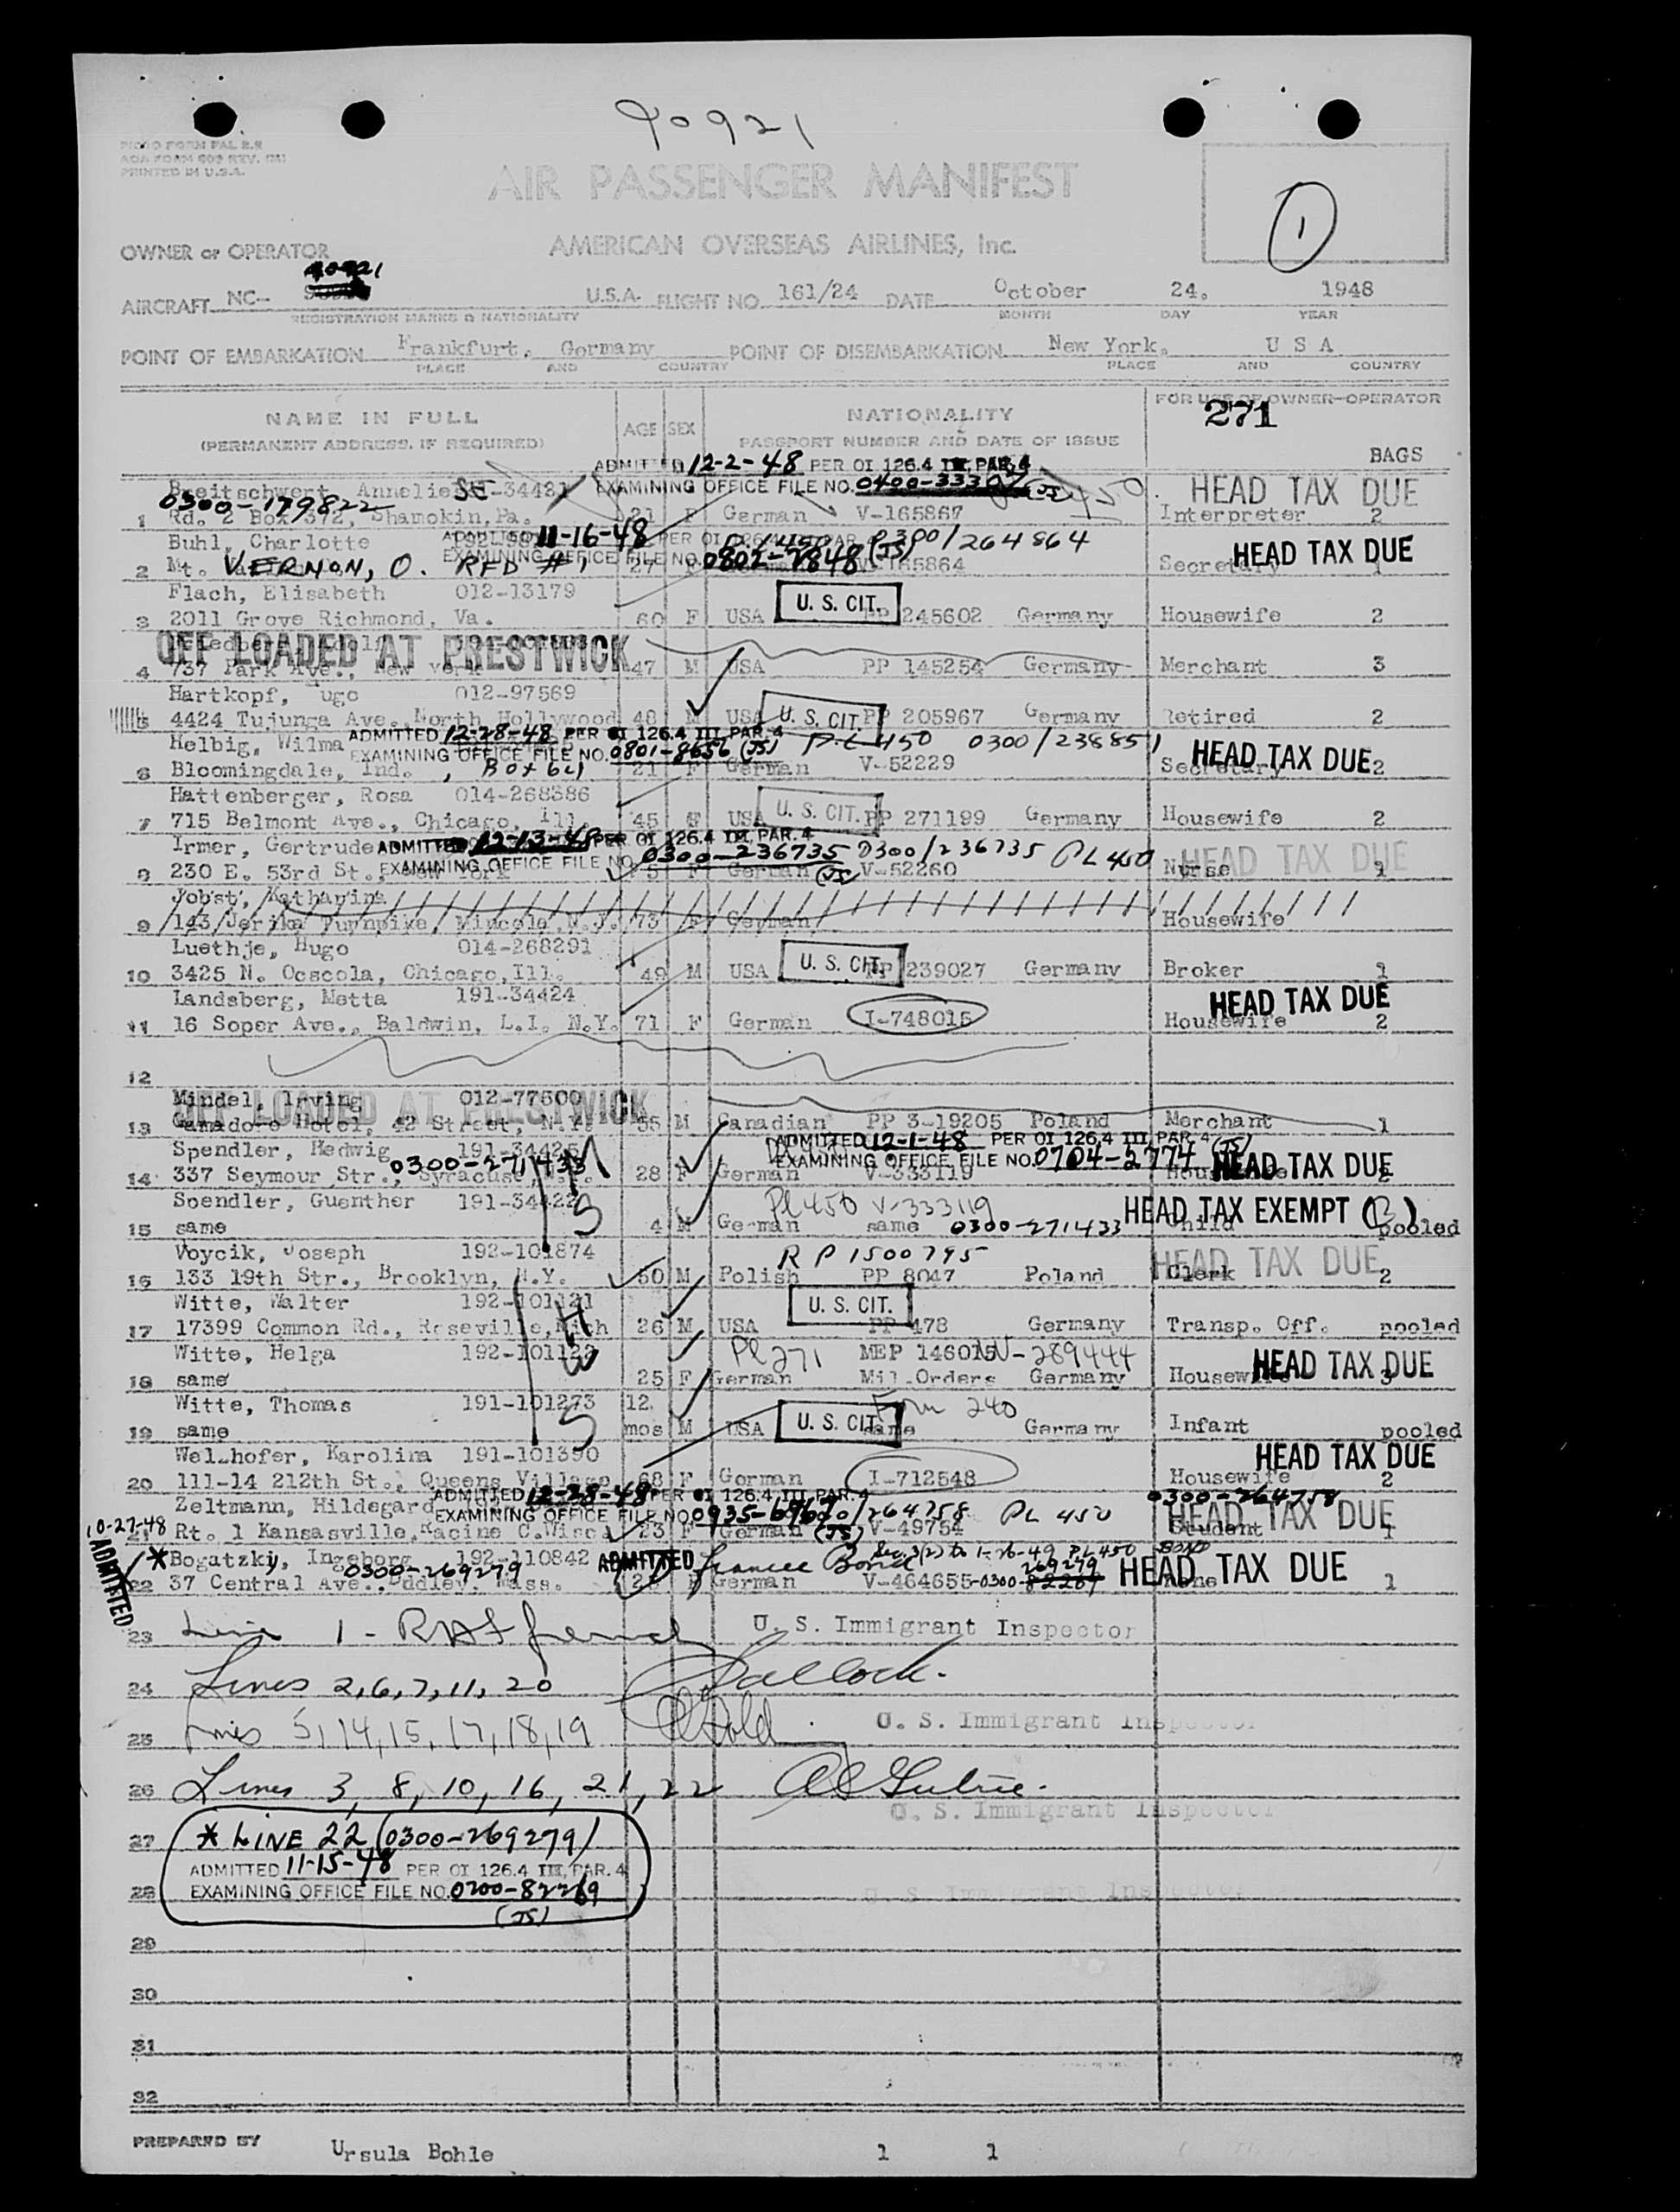 90921
AOA FORM 609 REV.
PRINTED IN U.S.A.
AIR PASSENGER MANIFEST
1
OWNER or OPERATOR
AMERICAN OVERSEAS AIRLINES, Inc.
90921
AIRCRAFT NC- U.S.A. FLIGHT NO. 161/24 DATE October 24. 1948
REGISTRATION MARKS & NATIONALITY MONTH DAY YEAR
POINT OF EMBARKATION Frankfurt, Germany POINT OF DISEMBARKATION New York, U S A
PLACE AND COUNTRY PLACE AND COUNTRY
FOR USE OF OWNER-OPERATOR
NAME IN FULL AGE SEX NATIONALITY 271
(PERMANENT ADDRESS, IF REQUIRED) PASSPORT NUMBER AND DATE OF ISSUE
BAGS
ADMITTED 12-2-48 PER OI 126.4 III, PAR. 4
Breitschwert, Annelie -34421 EXAMINING OFFICE FILE NO. HEAD TAX DUE
0300-179822
1 Rd. 2 Box 372, Shamokin, Pa. 21 F German V-165867 Interpreter 2
Buhl, Charlotte ADMITTED 11-16-48 PER OI 0300/264864
EXAMINING OFFICE FILE NO. 0802-7848 (JS) HEAD TAX DUE
2 Mt. VERNON, O. RFD #1 27 V-165864 Secretary 1
Flach, Elisabeth 012-13179 U. S. CIT.
3 2011 Grove Richmond, Va. 60 F USA PP 245602 Germany Housewife 2
OFF LOADED AT PRESTWICK
4 737 Park Ave., New York 47 M USA PP 145254 Germany Merchant 3
Hartkopf, Hugo 012-97569 U. S. CIT.
5 4424 Tujunga Ave., North Hollywood 48 M USA PP 205967 Germany Retired 2
Helbig, Wilma ADMITTED 12-28-48 PER OI 126.4 III, PAR. 4 PL 450 0300/238851
EXAMINING OFFICE FILE NO. 0801-8656 (JS) HEAD TAX DUE
6 Bloomingdale, Ind., Box 64 21 F German V-52229 Secretary 2
Hattenberger, Rosa 014-268386 U. S. CIT.
7 715 Belmont Ave., Chicago, Ill. 45 F USA PP 271199 Germany Housewife 2
Irmer, Gertrude ADMITTED 12-13-48 PER OI 126.4 III, PAR. 4
EXAMINING OFFICE FILE NO. 0300-236735 0300/236735 PL 450 HEAD TAX DUE
8 230 E. 53rd St., New York F German (JS) V-52260 Nurse 1
Jobst, Katharina
9 143 Jeriko Turnpike, Mineola, N.J. 73 F German Housewife
Luethje, Hugo 014-268291 U. S. CIT.
10 3425 N. Ocscola, Chicago, Ill. 49 M USA PP 239027 Germany Broker 1
Landsberg, Metta 191-34424 HEAD TAX DUE
11 16 Soper Ave., Baldwin, L.I. N.Y. 71 F German I-748015 Housewife 2
12
Mindel, Irving 012-77600
OFF LOADED AT PRESTWICK
13 Comadore Hotel, 42 Street, N.Y. 55 M Canadian PP 3-19205 Poland Merchant 1
Spendler, Hedwig 191-34425 ADMITTED 12-1-48 PER OI 126.4 III, PAR. 4 (JS)
0300-271433 EXAMINING OFFICE FILE NO. 0704-2774 HEAD TAX DUE
14 337 Seymour Str., Syracuse 28 F German V-333119 2
Spendler, Guenther 191-34422 PL 450 V-333119 HEAD TAX EXEMPT
15 same 4 M German same 0300-271433 Child pooled
Voycik, Joseph 192-101874 RP 1500795 HEAD TAX DUE
16 133 19th Str., Brooklyn, N.Y. 50 M Polish PP 8047 Poland Clerk 2
Witte, Walter 192-101121 U. S. CIT.
17 17399 Common Rd., Roseville, Mich 26 M USA PP 478 Germany Transp. Off. pooled
Witte, Helga 192-101122 PL 271 MEP 146015 V-289444 HEAD TAX DUE
18 same 25 F German Mil.Orders Germany Housewife 3
Witte, Thomas 191-101273 12 Form 240
19 same mos M USA U. S. CIT. same Germany Infant pooled
Welzhofer, Karolina 191-101390 HEAD TAX DUE
20 111-14 212th St., Queens Village 68 F German I-712548 Housewife 2
Zeltmann, Hildegard ADMITTED 12-28-48 PER OI 126.4 III, PAR. 4 0300-264758
EXAMINING OFFICE FILE NO. /264758 PL 450 HEAD TAX DUE
10-27-48
ADMITTED
21 Rt. 1 Kansasville, Racine C. Wisc. 23 F German (JS) V-49754 Student 1
*Bogatzky, Ingeborg 192-110842 ADMITTED Sec. 3(2) to 1-26-49 PL 450 BOND
0300-269279 269279 HEAD TAX DUE
22 37 Central Ave., Dudley, Mass. F German V-464655-0300- None 1
23 Line 1 - U. S. Immigrant Inspector
24 Lines 2,6,7,11,20
25 Lines 5,14,15,17,18,19 Gold U. S. Immigrant Inspector
26 Lines 3, 8, 10, 16, 21, 22
U. S. Immigrant Inspector
27 * LINE 22 (0300-269279)
ADMITTED 11-15-48 PER OI 126.4 III, PAR. 4
28 EXAMINING OFFICE FILE NO. 0200-82269
U. S. Immigrant Inspector
(JS)
29
30
31
32
PREPARED BY Ursula Bohle 1 1